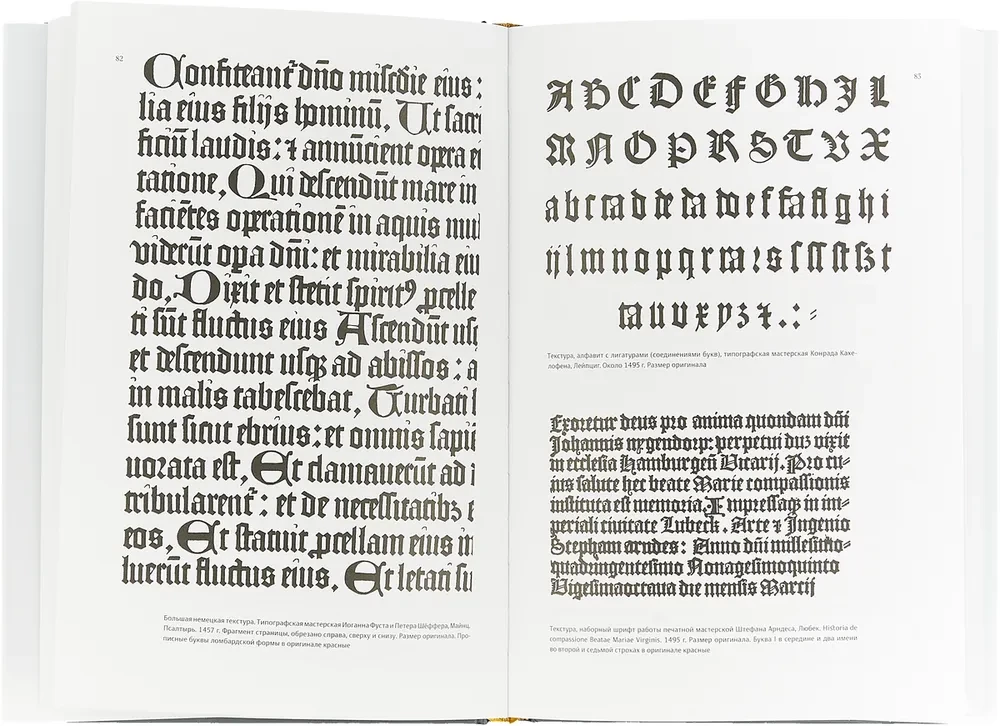 82
Confiteant᷑ dño mis̃cdie eius:
lia eius filijs hominũ, Ut sacri
ficiũ laudis: ⁊ annũcient opera ei
tatione, Qui descendũt mare in
faciẽtes operationẽ in aquis mul
viderũt opa dñi: et mirabilia eiu
do, Dixit et stetit spiritꝰ ꝓcelle
ti sũt fluctus eius Ascendũt usq
et descendunt usqꝫ ad abissos: a
in malis tabescebat, Turbati s
sunt sicut ebrius: et omnis sapiẽ
uorata est, Et clamauerũt ad
tribularent᷑: et de necessitatibꝫ e
eos, Et statuit ꝓcellam eius in
luerũt fluctus eius. Et letati su
Большая немецкая текстура. Типографская мастерская Иоганна Фуста и Петера Шёффера, Майнц.
Псалтырь. 1457 г. Фрагмент страницы, обрезано справа, сверху и снизу. Размер оригинала. Про-
писные буквы ломбардской формы в оригинале красные
83
A B C D E F G H I L
M N O P R S T V X
a b c ca d de da do e f fa fl g h i
ij l m n o p q r ra ꝛ s ſ ſſ ſt ß t
ta u v x y z ⁊ . : ⸗
Текстура, алфавит с лигатурами (соединениями букв), типографская мастерская Конрада Каче-
лофена, Лейпциг. Около 1495 г. Размер оригинала
Exoretur deus pro anima quondam dñi
Johannis nygendorp: perpetui duꝫ vixit
in ecclesia Hamburgeñ Vicarij. Pro cu⸗
ius salute hec beate Marie compassionis
instituta est memoria. Impressaqꝫ in im⸗
periali ciuitate Lubeck. Arte ⁊ Ingenio
Stephani arndes: Anno dñi millesimo⸗
quadringentesimo Nonagesimoquinto
Vigesimaoctaua die mensis Marcij
Текстура, наборный шрифт работы печатной мастерской Штефана Арндеса, Любек. Historia de
compassione Beatae Mariae Virginis. 1495 г. Размер оригинала. Буква I в середине и два имени
во второй и седьмой строках в оригинале красные